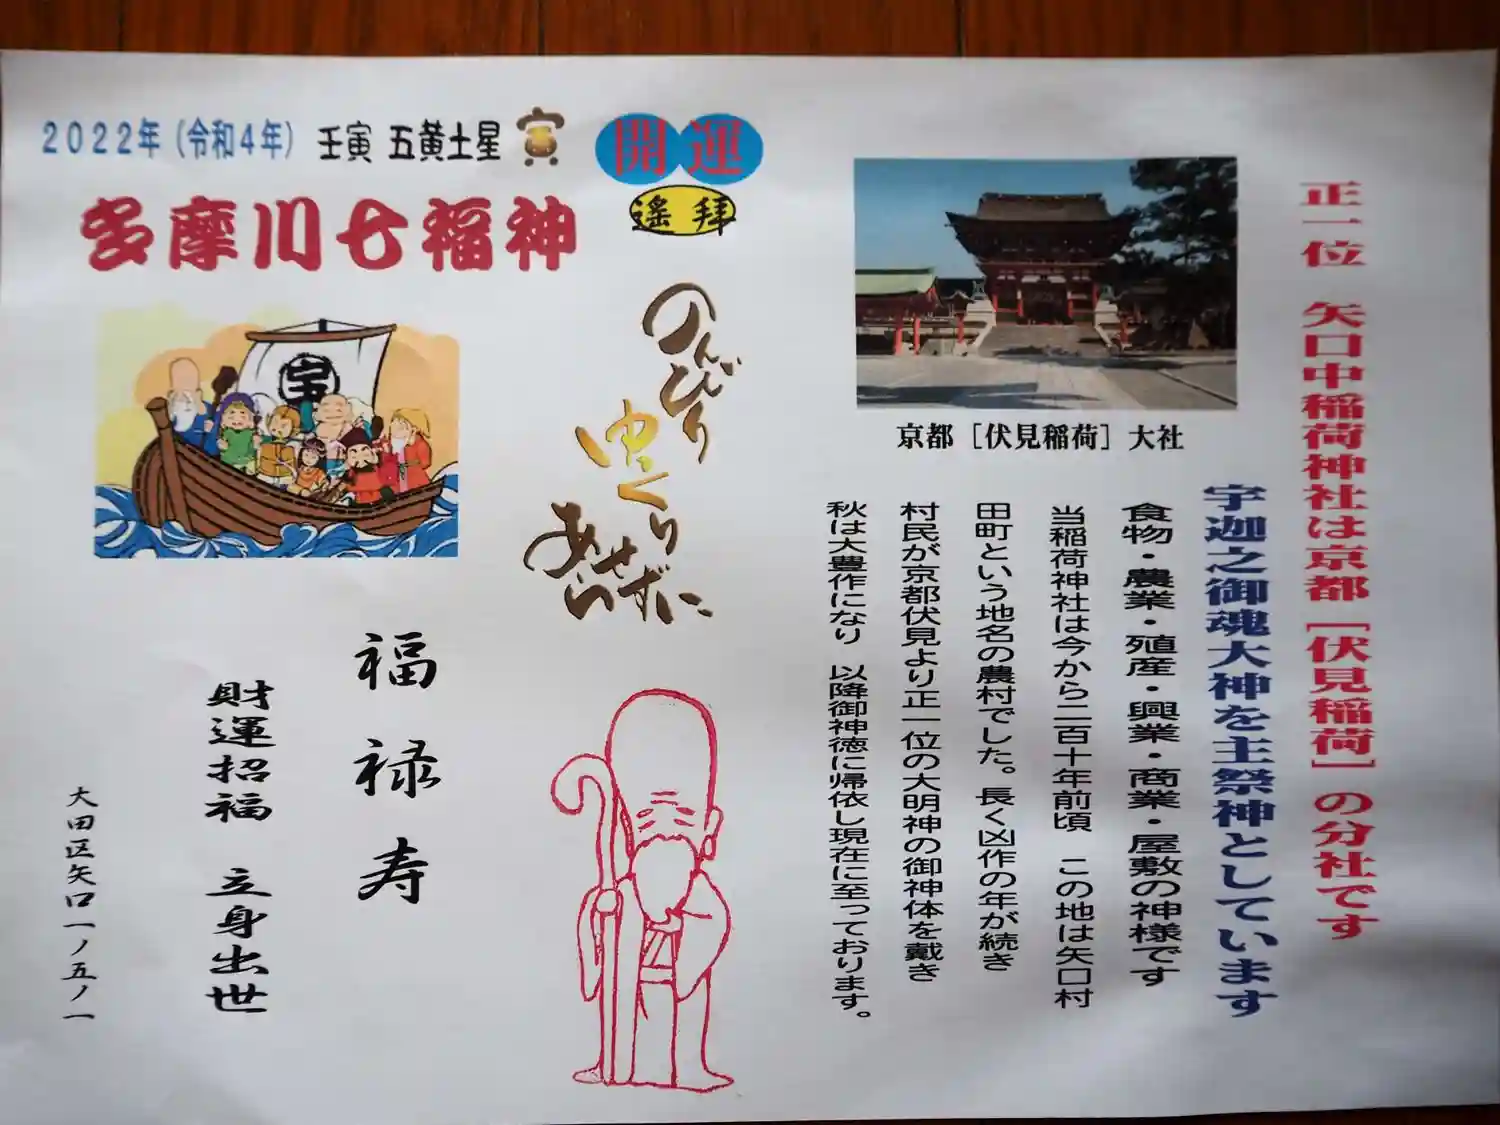 2022年(令和4年) 壬寅 五黄土星 寅
開運
遥拝
多摩川七福神
宝
のんびり
ゆっくり
あせらずに
福禄寿
財運招福 立身出世
大田区矢口一ノ五ノ一
京都[伏見稲荷]大社
正一位 矢口中稲荷神社は京都[伏見稲荷]の分社です
宇迦之御魂大神を主祭神としています
食物・農業・殖産・興業・商業・屋敷の神様です
当稲荷神社は今から二百十年前頃 この地は矢口村
田町という地名の農村でした。長く凶作の年が続き
村民が京都伏見より正一位の大明神の御神体を戴き
秋は大豊作になり 以降御神徳に帰依し現在に至っております。